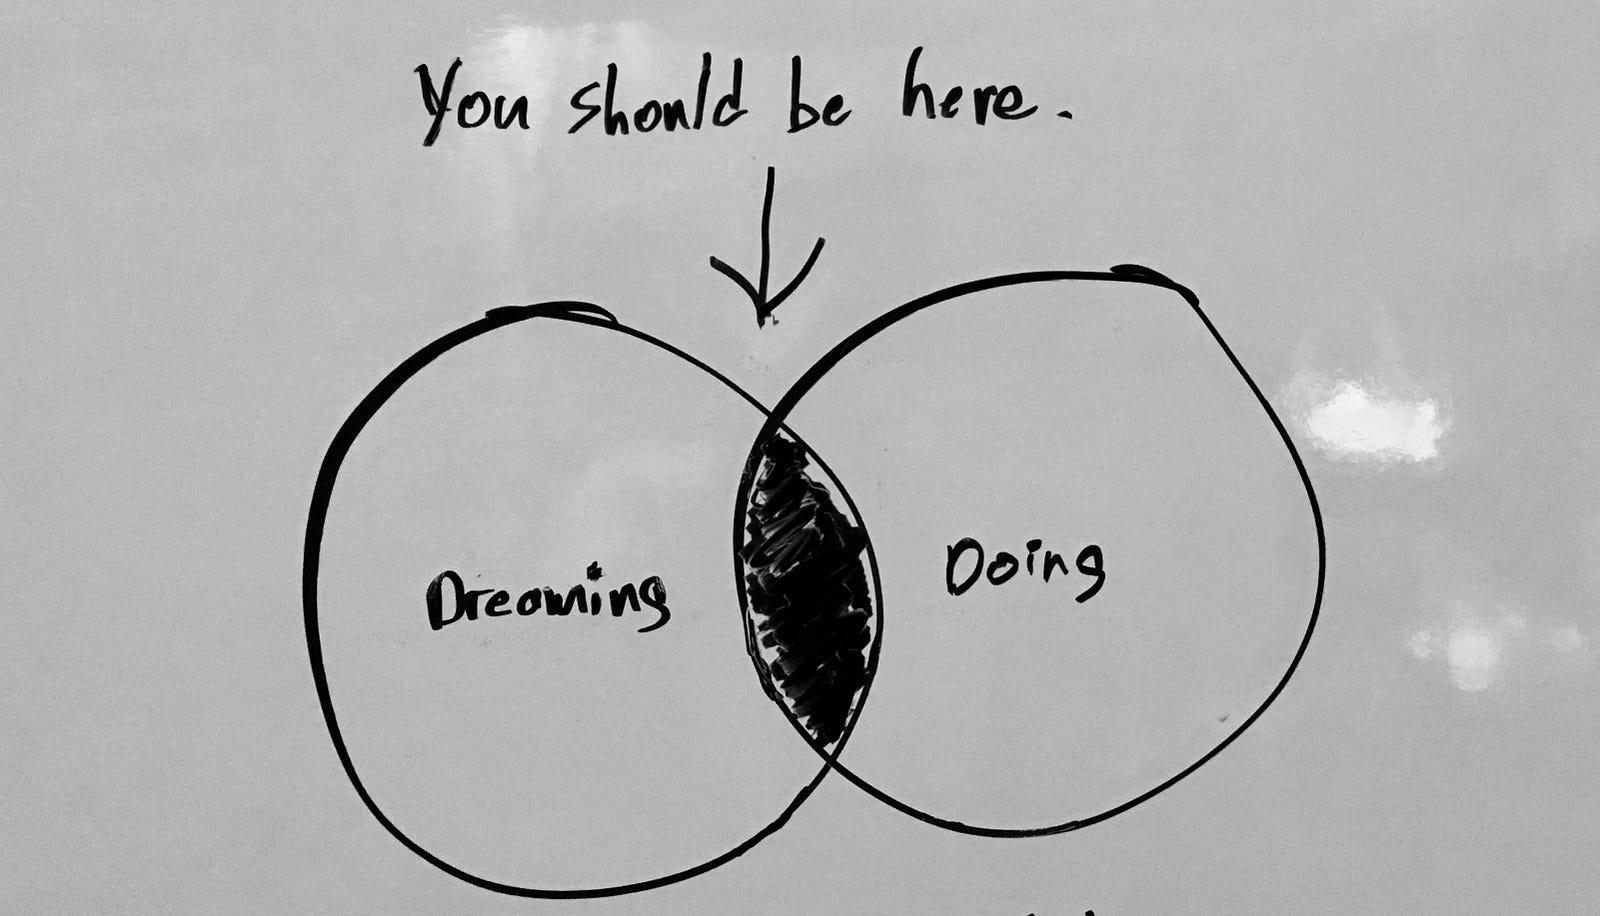 You should be here.
Dreaming
Doing